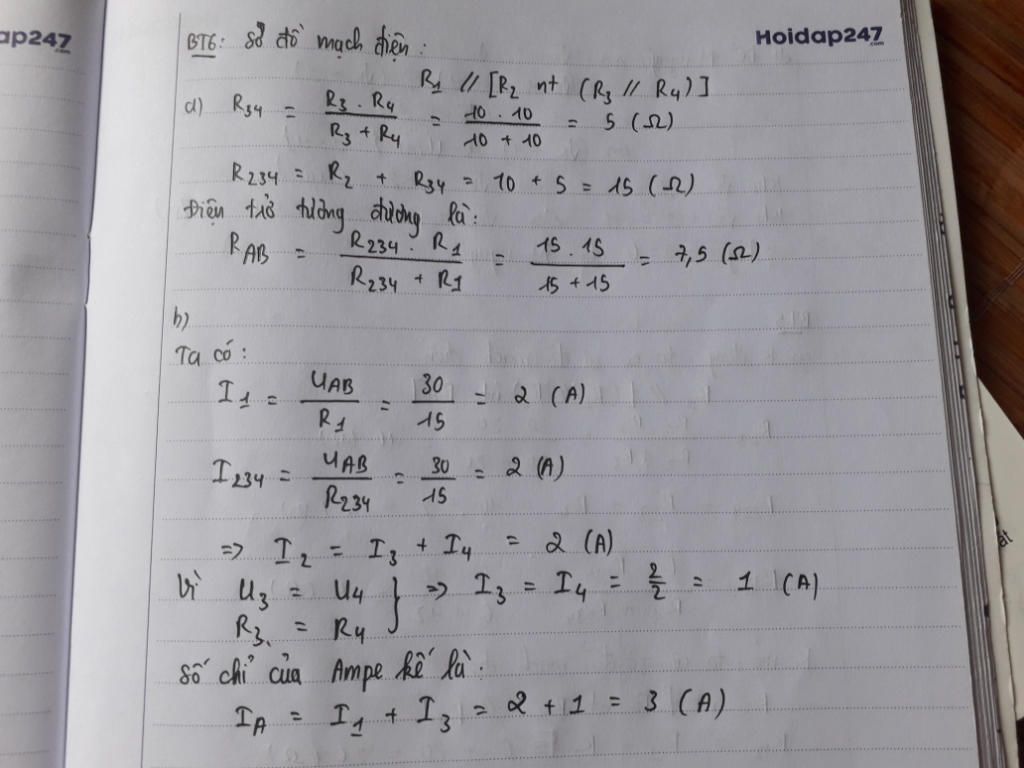 ap247
.com
Hoidap247
.com
BT6: Sơ đồ mạch điện:
R1 // [R2 nt (R3 // R4)]
a) R34 = R3 . R4 / R3 + R4 = 10 . 10 / 10 + 10 = 5 (Ω)
R234 = R2 + R34 = 10 + 5 = 15 (Ω)
Điện trở tương đương là:
RAB = R234 . R1 / R234 + R1 = 15 . 15 / 15 + 15 = 7,5 (Ω)
b)
Ta có:
I1 = UAB / R1 = 30 / 15 = 2 (A)
I234 = UAB / R234 = 30 / 15 = 2 (A)
=> I2 = I3 + I4 = 2 (A)
Vì U3 = U4 } => I3 = I4 = 2/2 = 1 (A)
R3 = R4
Số chỉ của Ampe kế là:
IA = I1 + I3 = 2 + 1 = 3 (A)